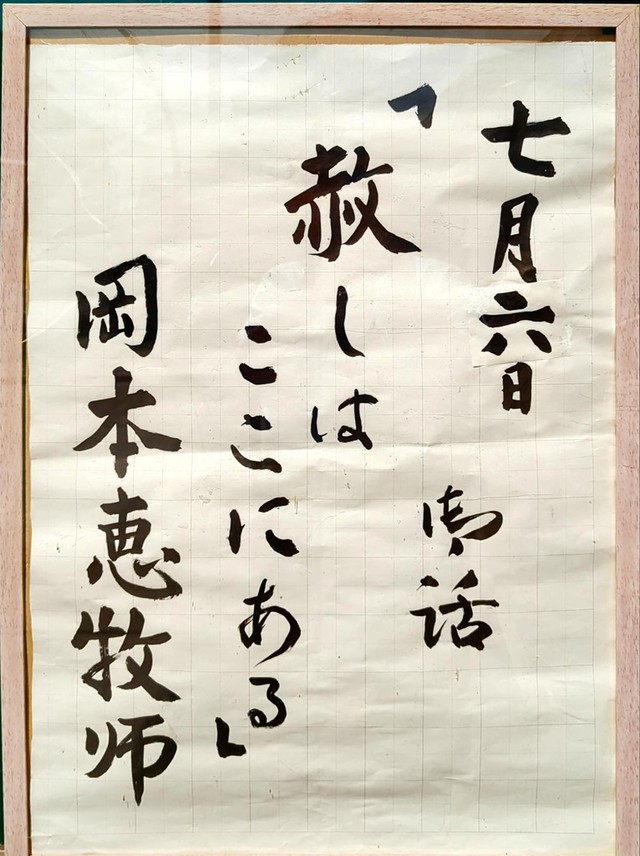 七月六日
御話
「赦しは
ここにある」
岡本恵牧师